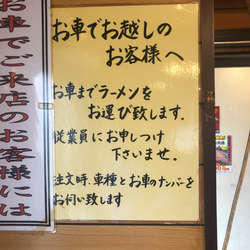 お車でお越しの
お客様へ
お車までラーメンを
お運び致します。
従業員にお申しつけ
下さいませ。
注文時、車種とお車のナンバーを
お伺い致します
お車でご来店のお客様には